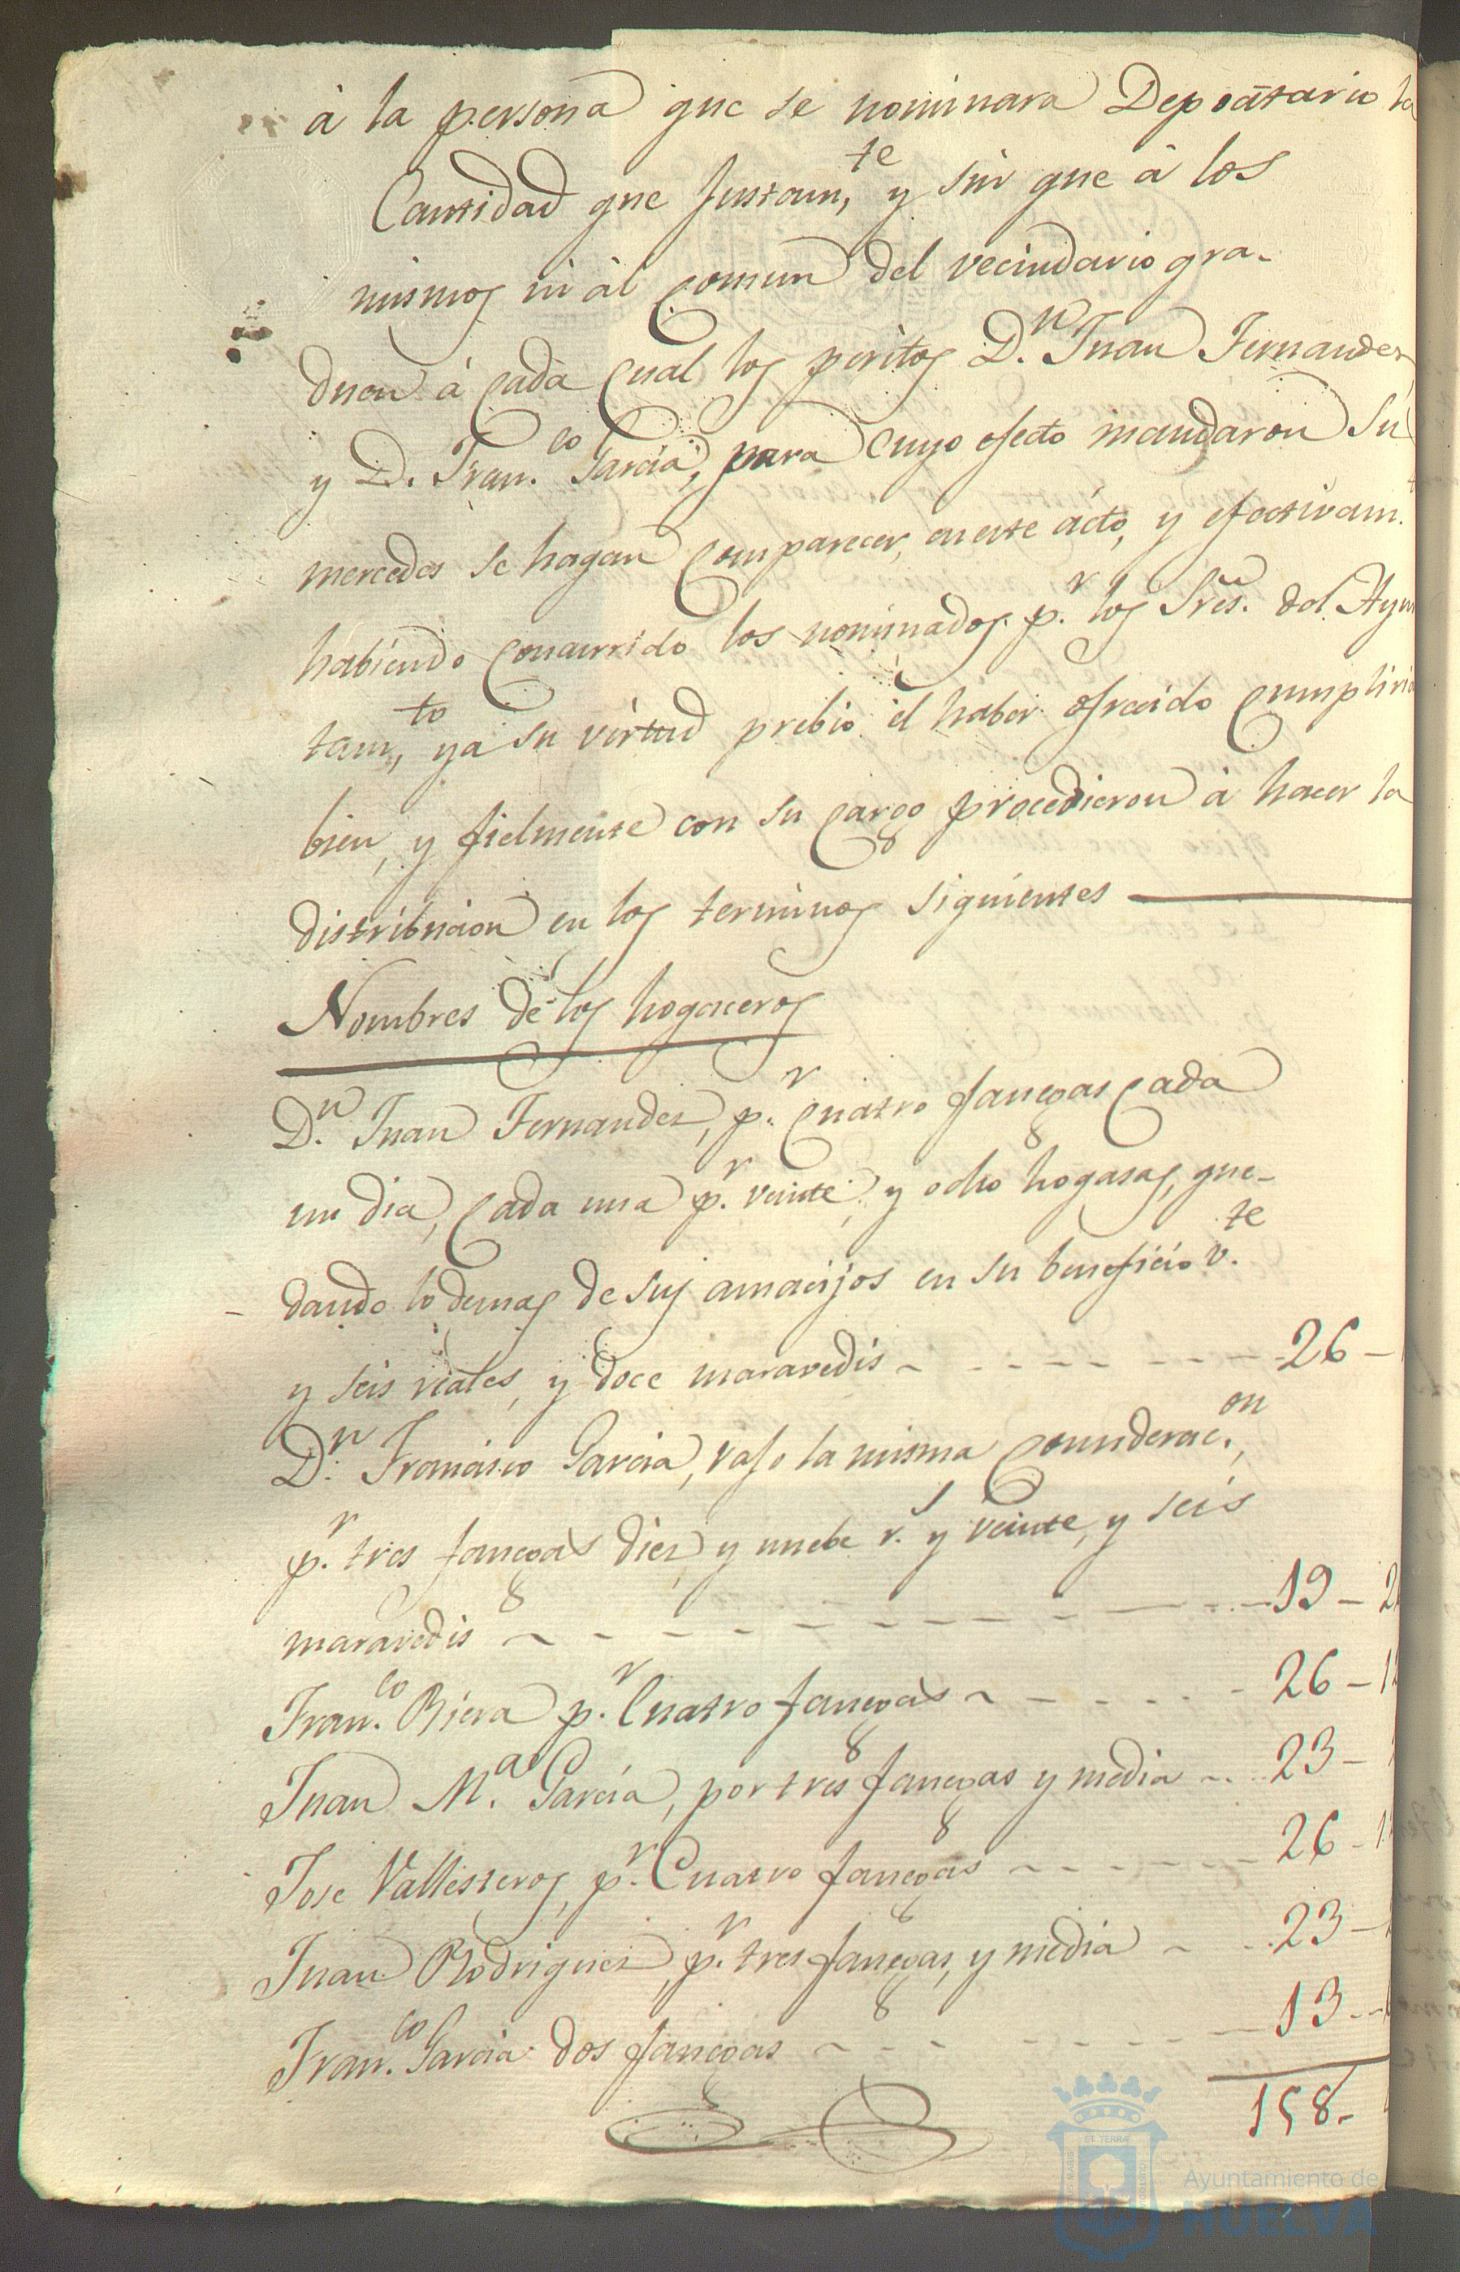 à la persona que se nominara Depoātario la
Cantidad que Justam,te y sin que à los
mismos ni al comun del vecindario gra-
duen á cada cual los peritos D.n Juan Fernandez
y D. Fran.co Garcia, para cuyo efecto mandaron Su
mercedes se hagan comparecer, en este ácto, y efectivam.
habiendo concurrido los nominados p.r los Sres. del Ayun
tam,to ya su virtud prebio el haber ofrecido cumplirian
bien, y fielmente con su cargo procedieron à hacer la
distribucion en los terminos siguientes
Nombres de los hogaceros
D.n Juan Fernandez, p.r cuatro fanegas cada
un dia, cada una p.r veinte, y ocho hogasas, que-
dando lo demas de sus amacijos en su beneficio v.te
y seis reales, y doce maravedis 26 -
D.n Francisco Garcia, vajo la misma considerac.on,
p.r tres fanegas diez, y nuebe r.s y veinte, y seis
maravedis 19 - 2
Fran.co Riera p.r Cuatro fanegas 26 - 12
Juan M.a Garcia, por tres fanegas y media 23 -
Jose Vallesteros, p.r Cuatro fanegas 26 - 1
Juan Rodriguez, p.r tres fanegas, y media 23 -
Fran.co Garcia dos fanegas 13 -
158 -
Ayuntamiento de
HUELVA